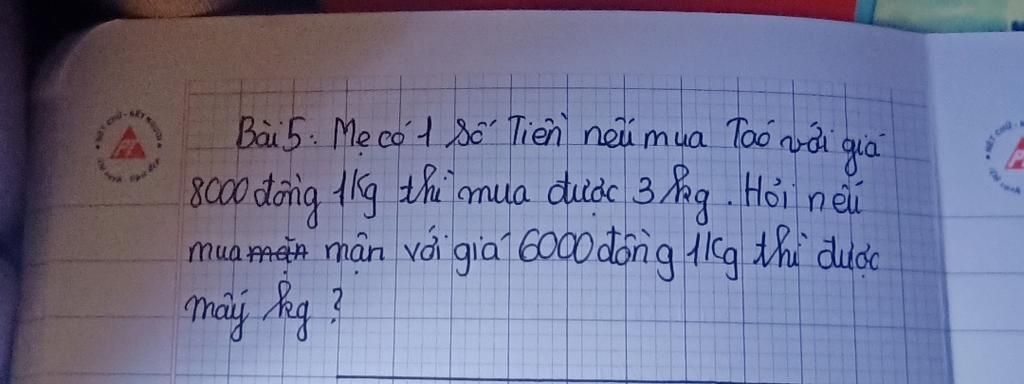 Bài 5: Mẹ có 1 số Tiền nếu mua Táo với giá
8000 đồng 1kg thì mua được 3 kg. Hỏi nếu
mua mận mận với giá 6000 đồng 1kg thì được
mấy kg?
NÉT CHỮ - NẾT NGƯỜI
PT